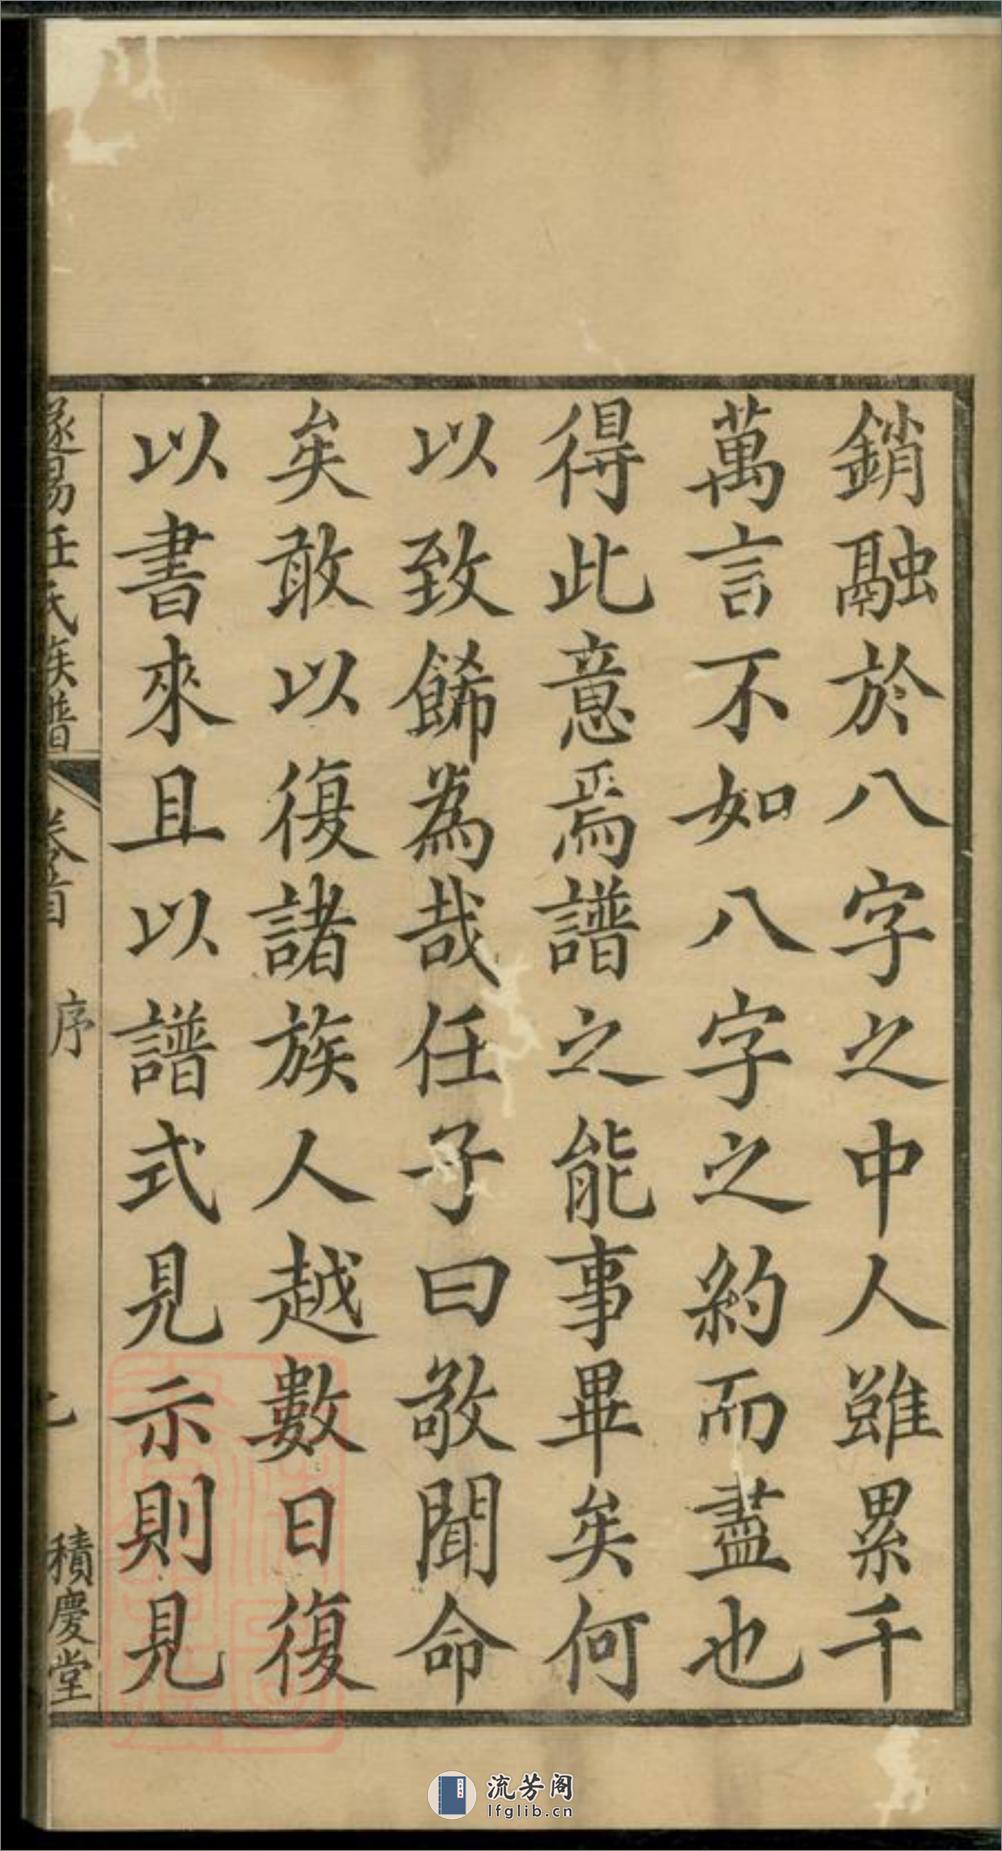 銷融於八字之中人雖累千
萬言不如八字之約而盡也
得此意焉譜之能事畢矣何
以致餙為哉任子曰敬聞命
矣敢以復諸族人越數日復
以書來且以譜式見示則見
遂昜任氏族譜
卷首
序
積慶堂
流芳阁
lfglib.cn